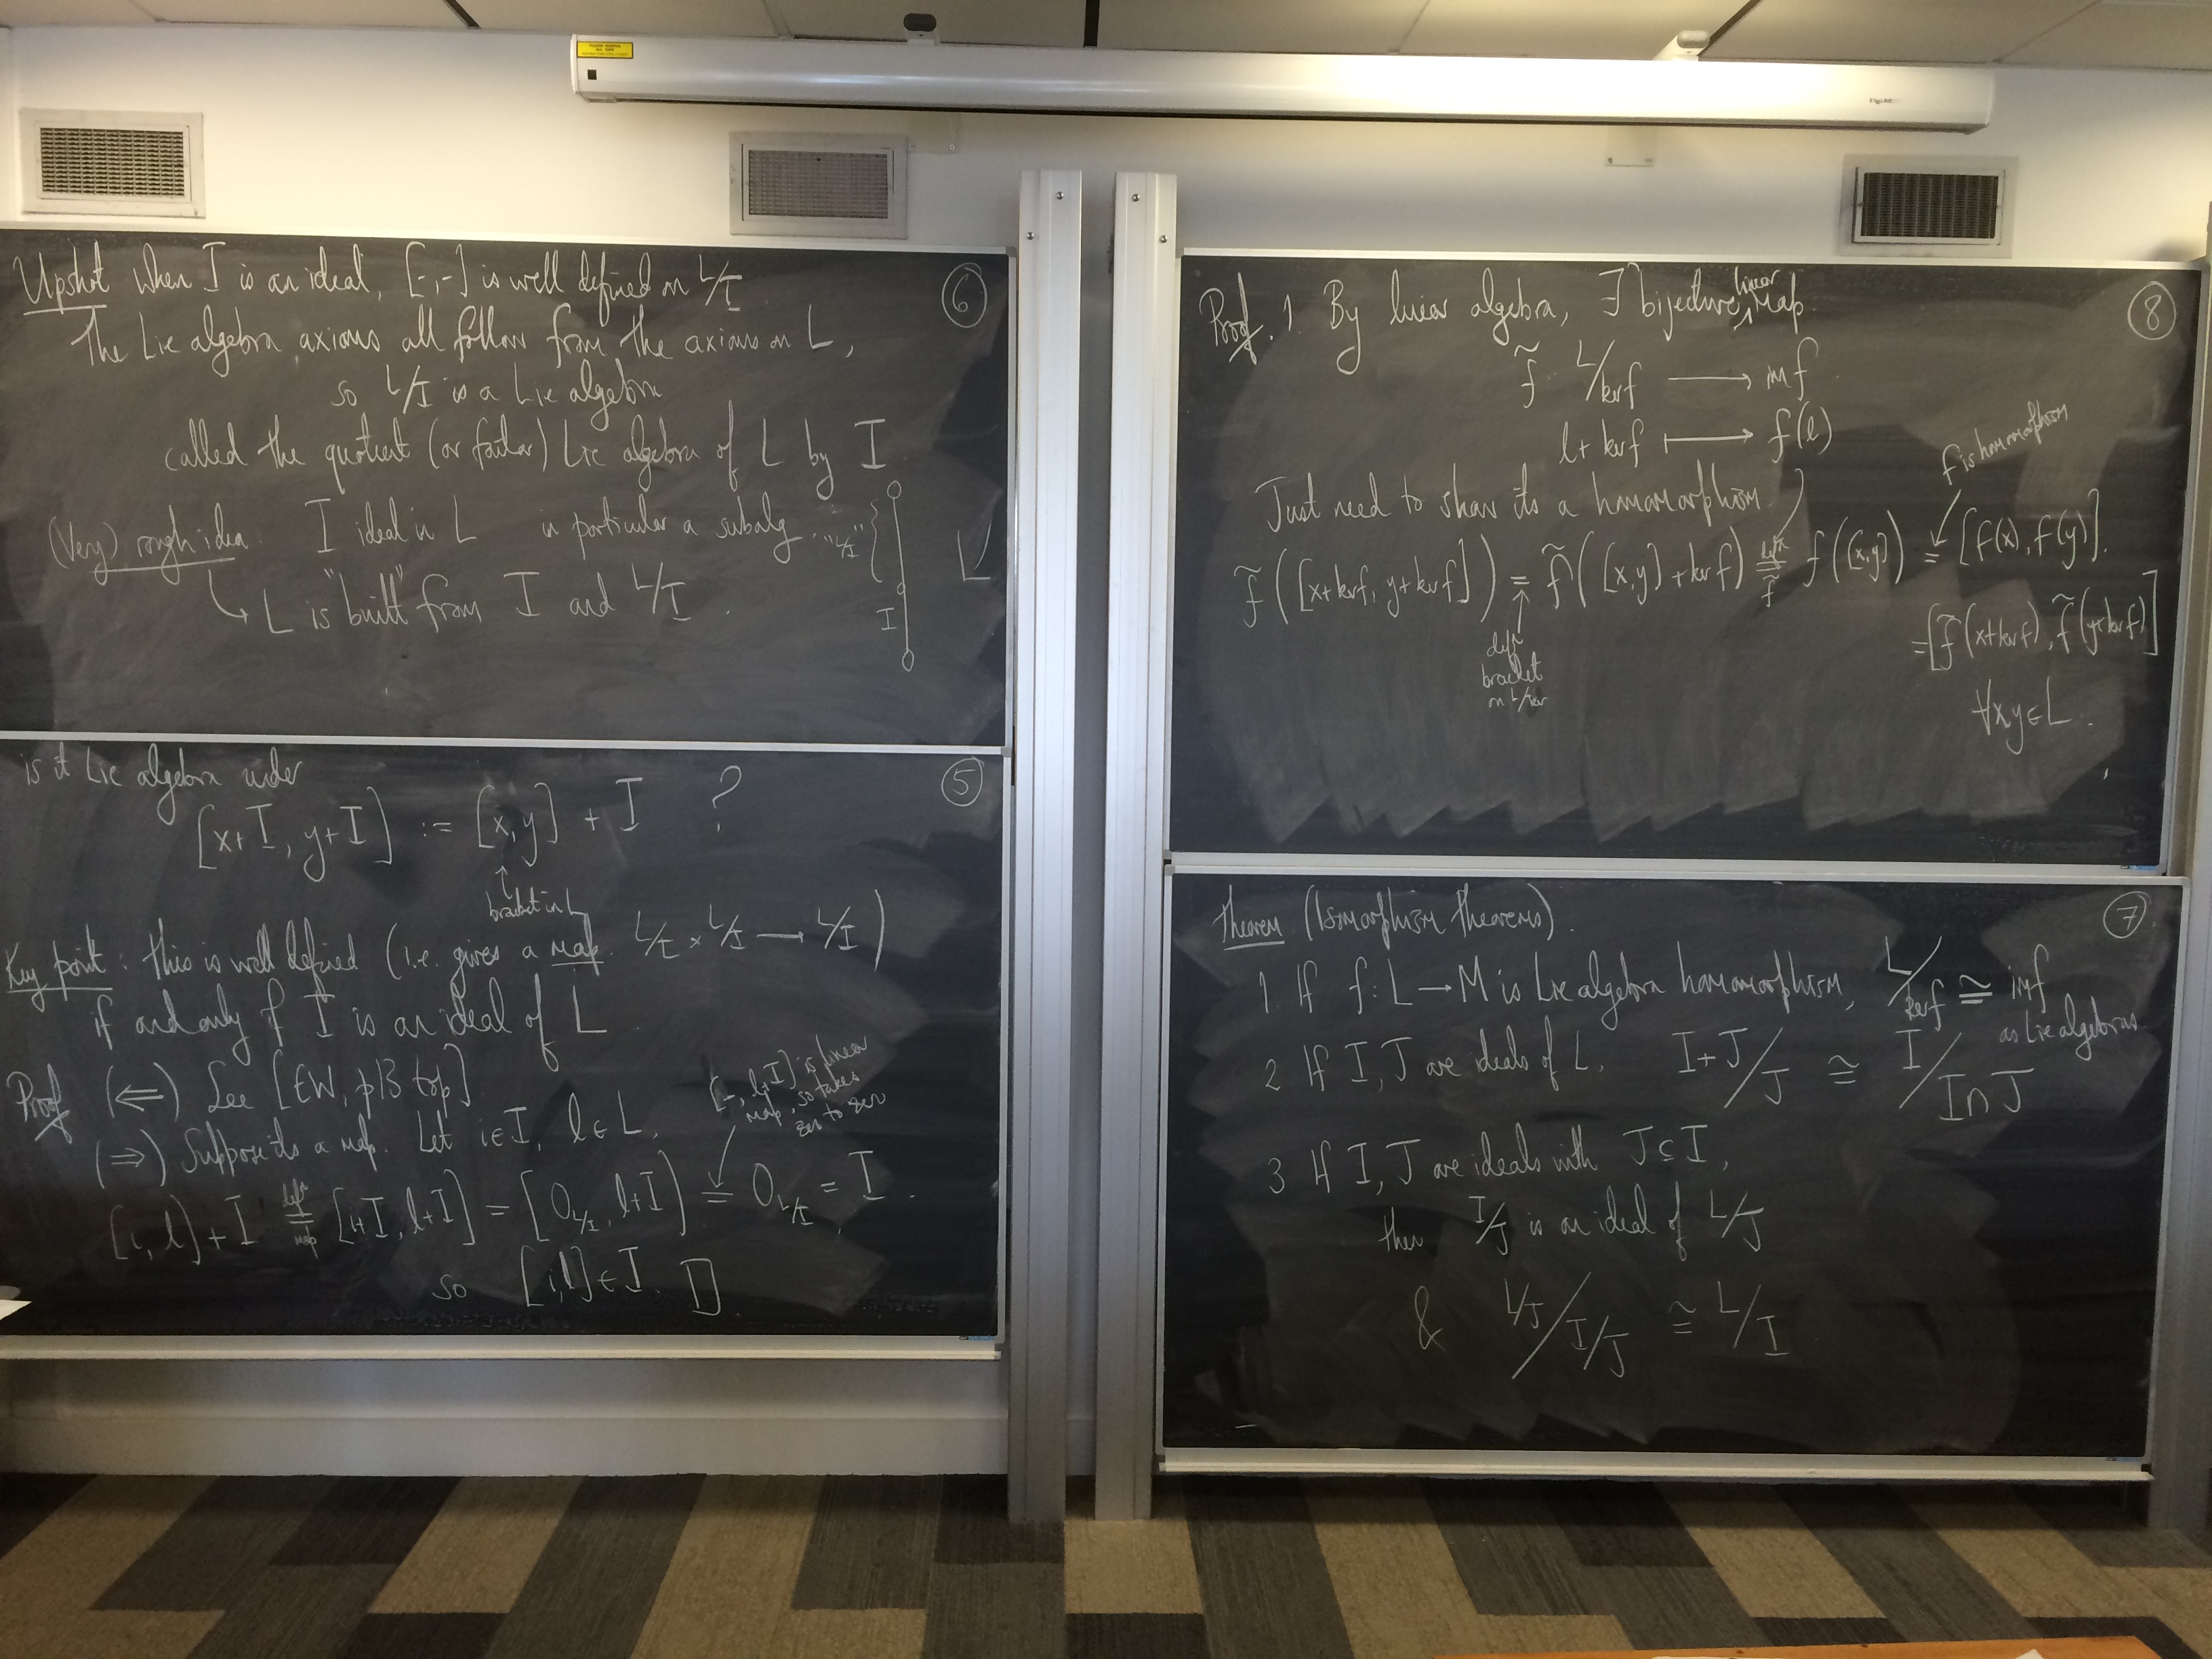 ⑤
is it Lie algebra under
[x+I, y+I] := [x,y] + I ?
↑
bracket in L
Key point: this is well defined (i.e. gives a map L/I × L/I → L/I)
if and only if I is an ideal of L
Proof (⇐) See [EW, p13 top]
(⇒) Suppose its a map. Let i∈I, l∈L.
[-, l+I] is linear
map, so takes
zero to zero
[i, l] + I = [i+I, l+I] = [0_{L/I}, l+I] = 0_{L/I} = I.
defn
map
so [i,l] ∈ I. □
⑥
Upshot when I is an ideal, [-,-] is well defined on L/I
The Lie algebra axioms all follow from the axioms on L,
so L/I is a Lie algebra
called the quotient (or factor) Lie algebra of L by I
(Very) rough idea I ideal in L in particular a subalg.
↳ L is "built" from I and L/I.
"L/I"
I
L
⑦
Theorem (Isomorphism theorems).
1. If f: L → M is Lie algebra homomorphism, L/ker f ≅ im f
as Lie algebras.
2 If I, J are ideals of L, I+J/J ≅ I/I∩J
3 If I, J are ideals with J ⊆ I,
then I/J is an ideal of L/J
& L/J / I/J ≅ L/I
⑧
Proof. 1. By linear algebra, ∃ bijective linear map
f̃ L/ker f → im f
l + ker f ↦ f(l)
Just need to show its a homomorphism.
f is homomorphism
f̃([x+ker f, y+ker f]) = f̃([x,y] + ker f) = f([x,y]) = [f(x), f(y)].
defn
f̃
defn
bracket
on L/ker
= [f̃(x+ker f), f̃(y+ker f)]
∀x,y ∈ L.